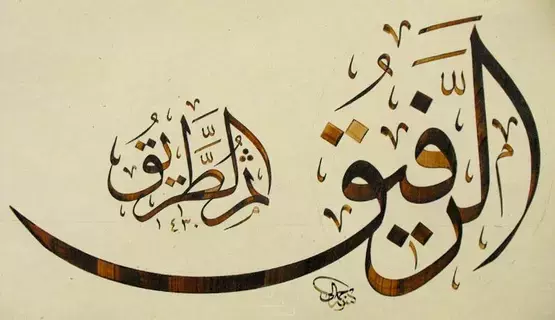 الرَّفِيقَ
ثُمَّ الطَّرِيقُ
١٤٣٠